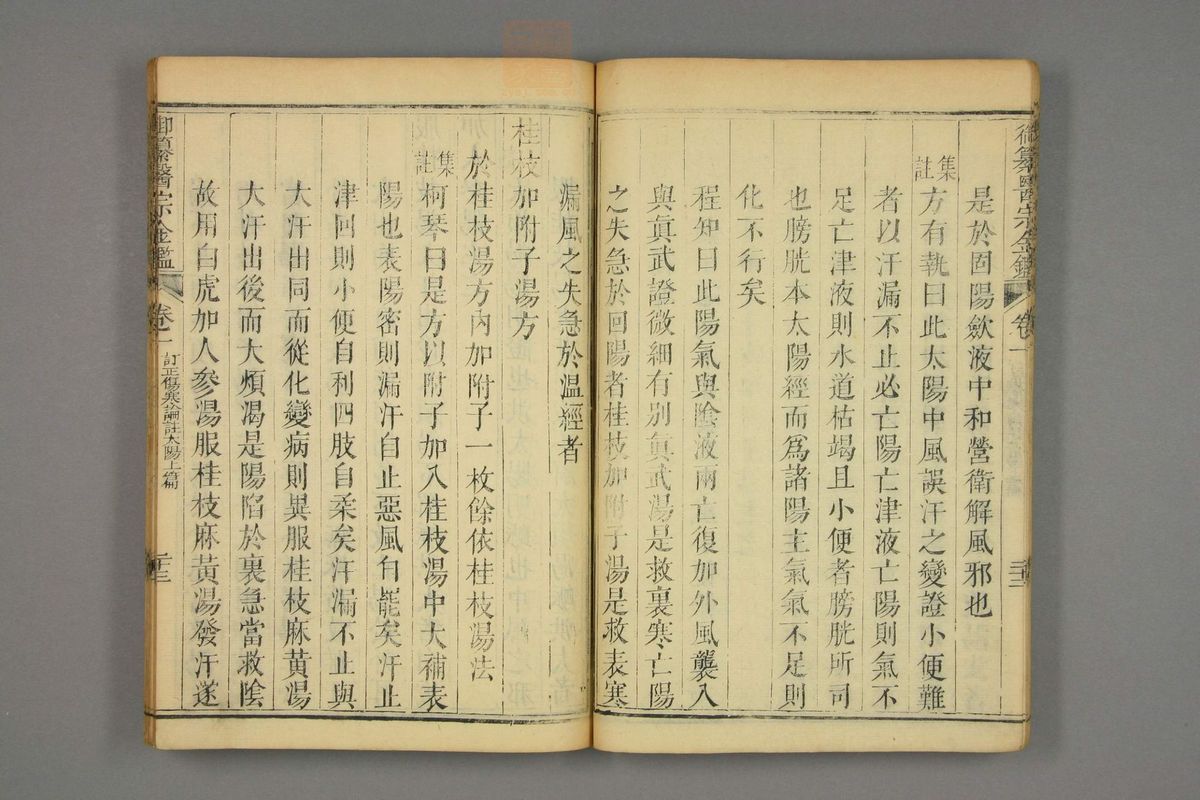 御纂醫宗金鑑
卷一
是於固陽歛液中和營衛解風邪也
集註
方有執曰此太陽中風誤汗之變證小便難
者以汗漏不止必亡陽亡津液亡陽則氣不
足亡津液則水道枯竭且小便者膀胱所司
也膀胱本太陽經而爲諸陽主氣氣不足則
化不行矣
程知曰此陽氣與陰液兩亡復加外風襲入
與眞武證微細有別眞武湯是救裏寒亡陽
之失急於回陽者桂枝加附子湯是救表寒
漏風之失急於温經者
桂枝加附子湯方
於桂枝湯方內加附子一枚餘依桂枝湯法
集註
柯琴曰是方以附子加入桂枝湯中大補表
陽也表陽密則漏汗自止惡風自罷矣汗止
津回則小便自利四肢自柔矣汗漏不止與
大汗出同而從化變病則異服桂枝麻黃湯
大汗出後而大煩渴是陽陷於裏急當救陰
故用白虎加人參湯服桂枝麻黃湯發汗遂
御纂醫宗金鑑
卷一
訂正傷寒論註太陽上篇
二十三